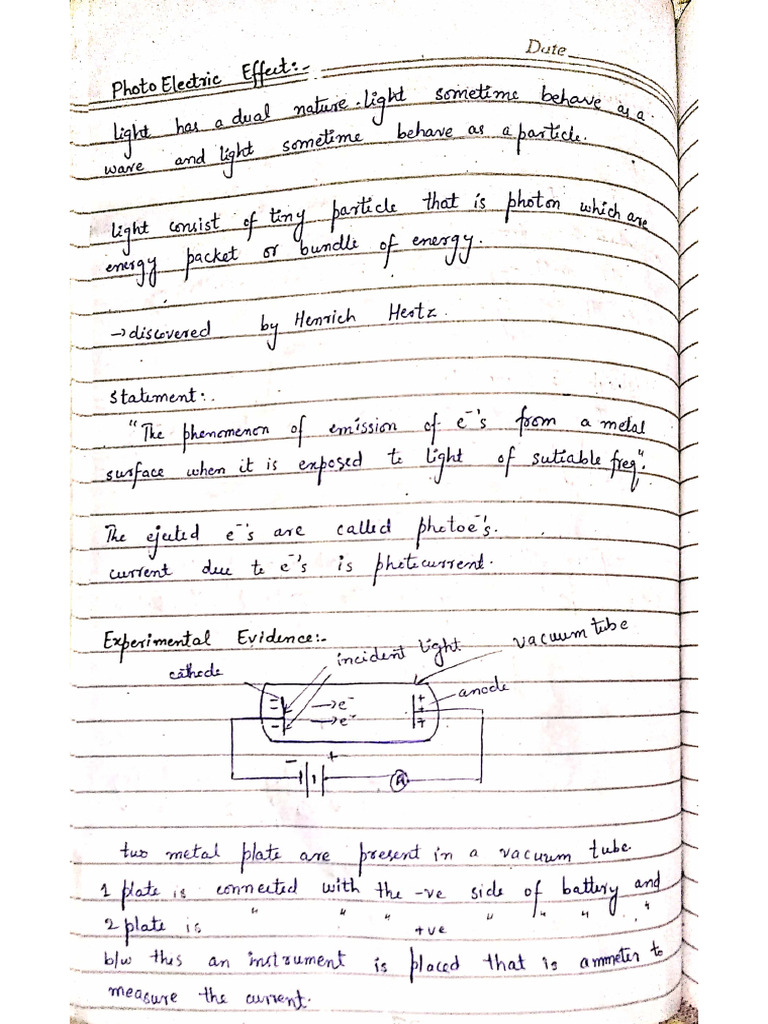 Date
Photo Electric Effect:-
light has a dual nature. light sometime behave as a
wave and light sometime behave as a particle.
light consist of tiny particle that is photon which are
energy packet or bundle of energy.
→ discovered by Henrich Hertz.
Statement:-
"The phenomenon of emission of e⁻'s from a metal
surface when it is exposed to light of sutiable freq".
The ejected e⁻'s are called photoe⁻'s.
current due to e⁻'s is photocurrent.
Experimental Evidence:-
incident light
vacuum tube
cathode
anode
= → e⁻ +
- → e⁻ +
+
- +
A
two metal plate are present in a vacuum tube.
1 plate is connected with the -ve side of battery and
2 plate is " " " +ve " " " "
b/w this an instrument is placed that is ammeter to
measure the current.